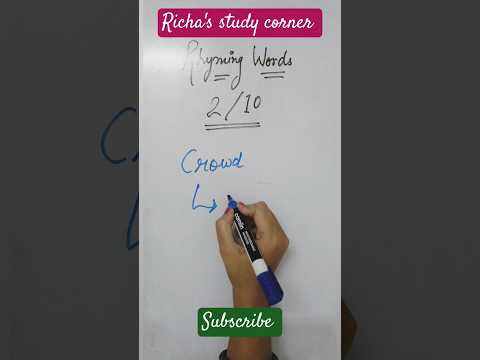 Richa's study corner
Rhyming Words
2/10
Crowd
Subscribe